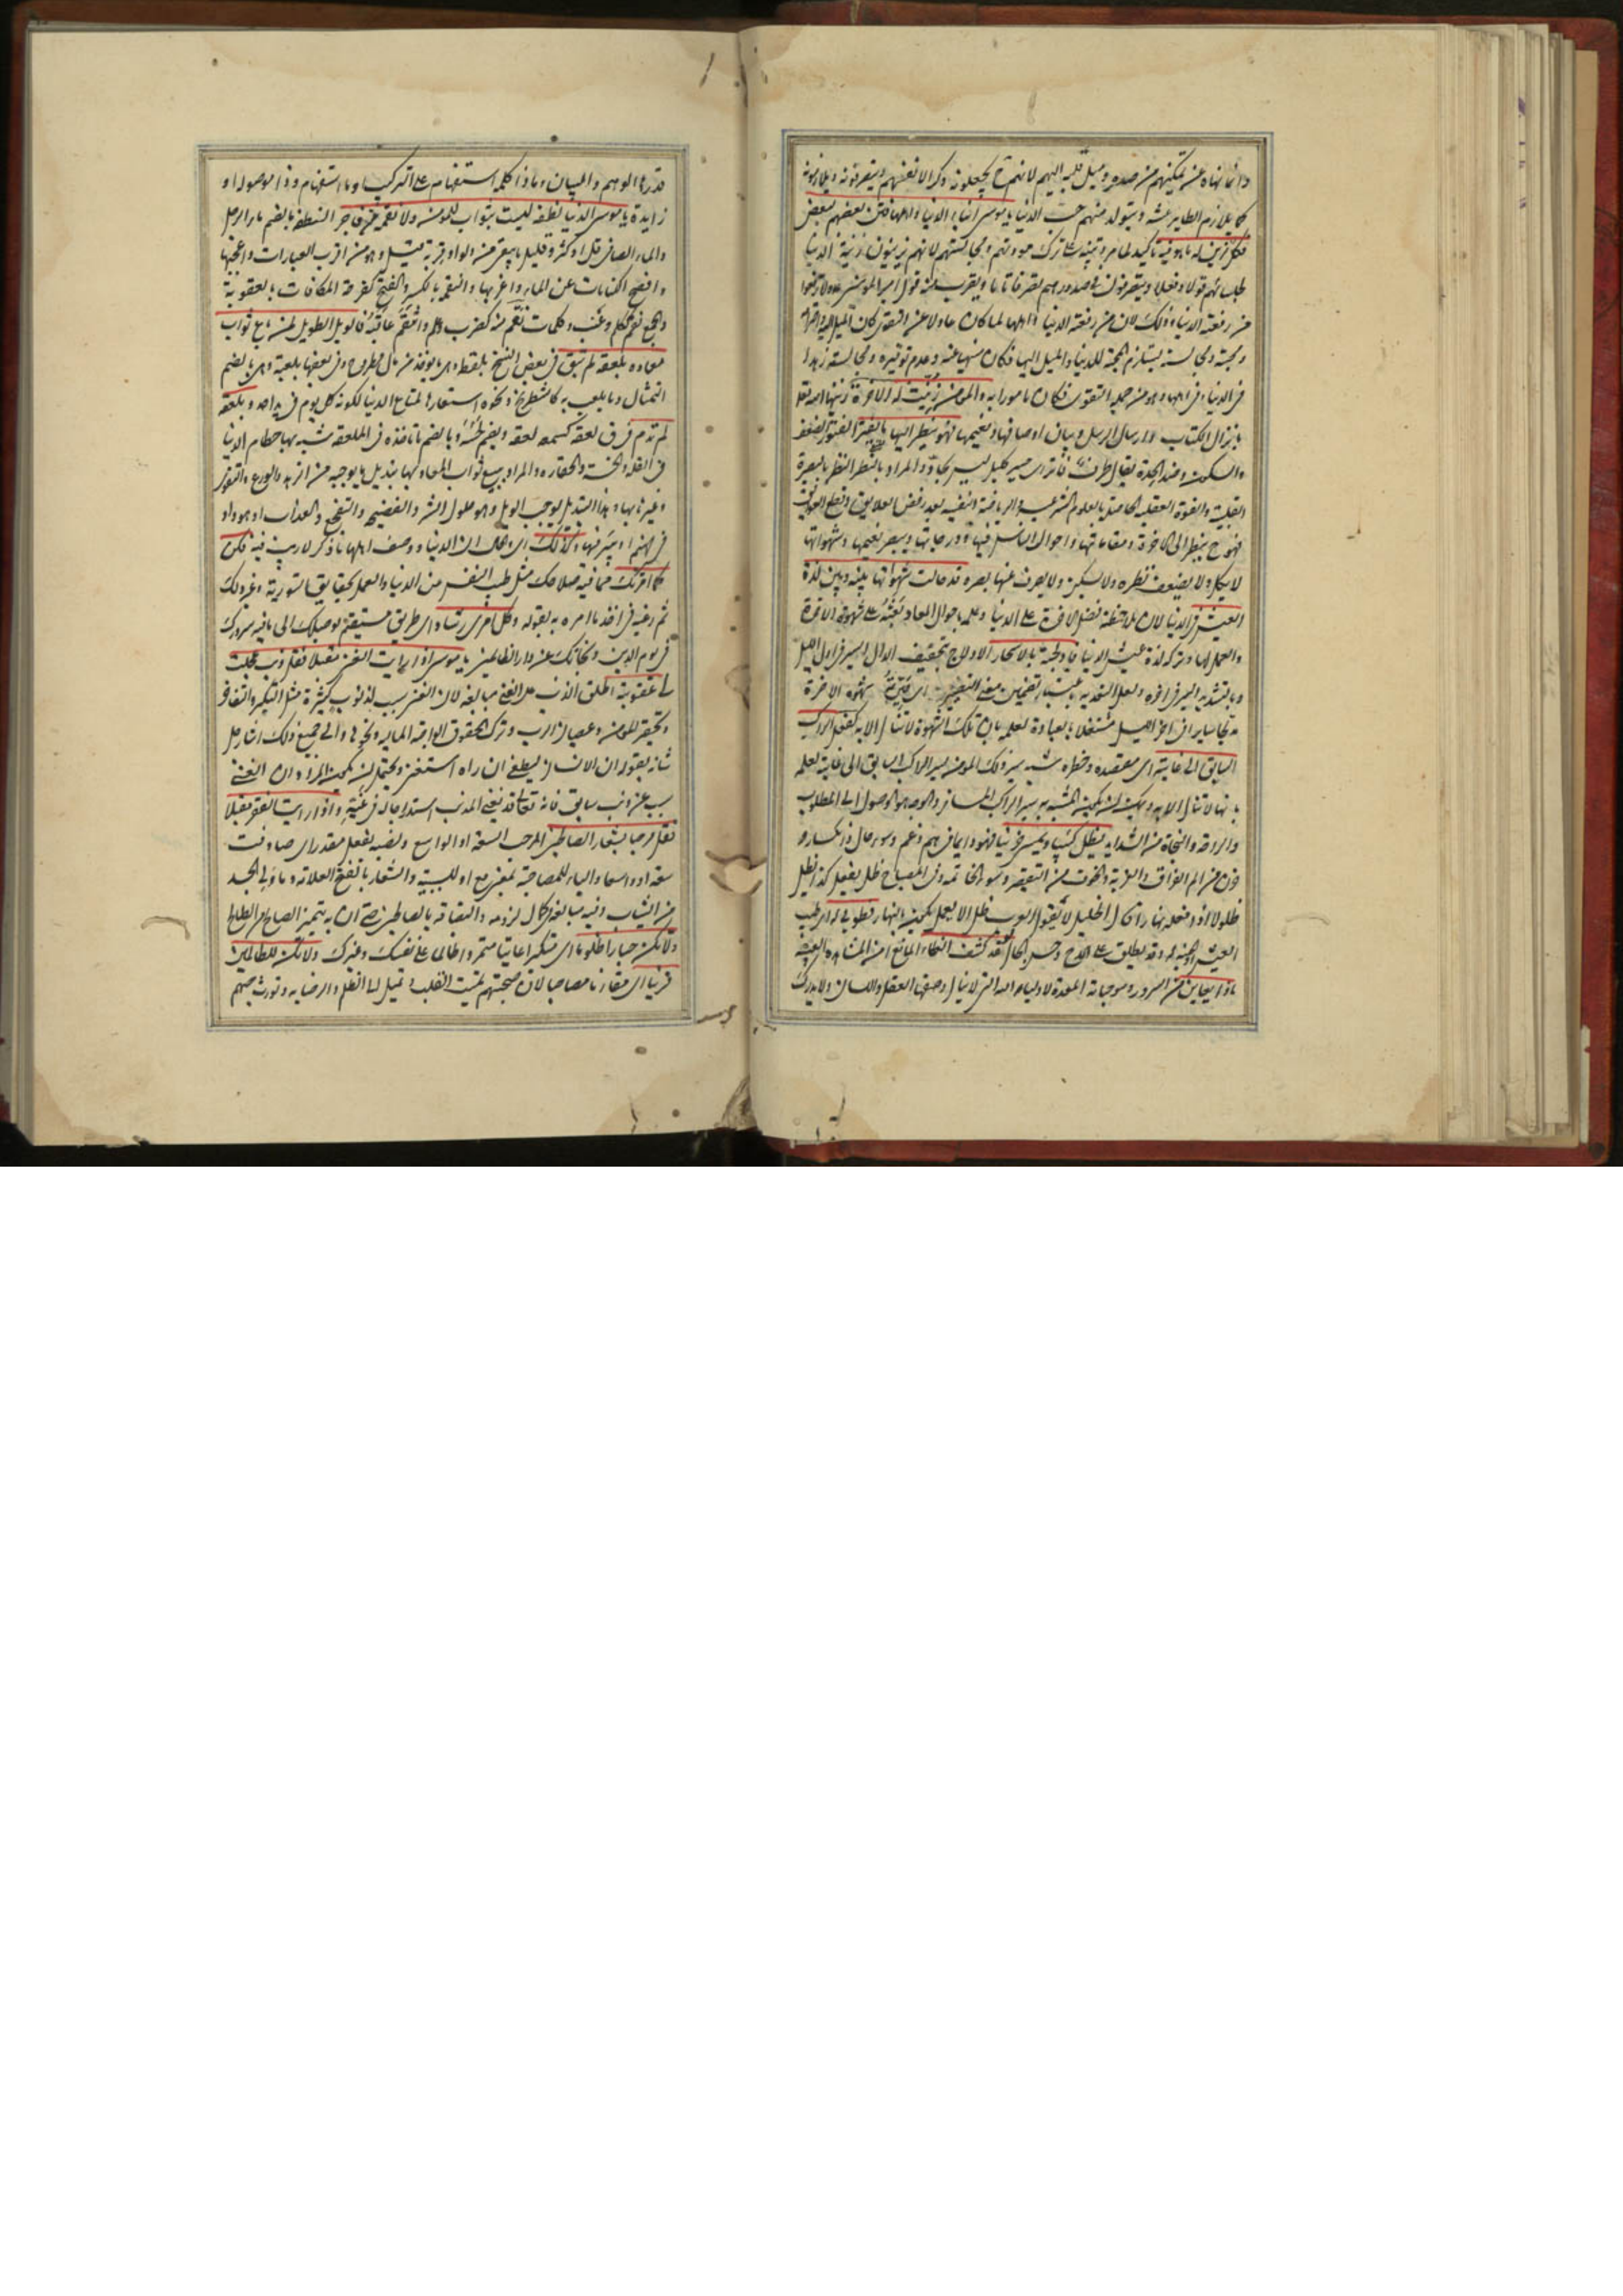 وانما نهاه عن تمكينهم من صدره وميل قلبه اليهم لانهم ح يجعلونه وكرا لانفسهم ويتصرفونه ويلازمونه
كما يلازم الطاير عشه ويتولد منهم حب الدنيا يا موسى ابناء الدنيا واهلها فتن بعضهم لبعض
فكل مزين له ما هو فيه تاكيد لما مر وتنبيه على ترك مودتهم ومجالستهم لانهم يزينون زينة الدنيا
لجلسائهم قولا وفعلا ويتصرفون في صدورهم تصرفا تاما ويقرب منه قول امير المؤمنين ولا ترفعوا
من رفعته الدنيا وذلك لان من رفعته الدنيا واهلها لما كان عادلا عن التقوى كان الميل اليه واحترامه
ومحبته ومجالسته يستلزم المحبة للدنيا والميل اليها فكان منهيا عنه وعدم توقيره ومجالسته زهدا
في الدنيا وفي اهلها وهو من جملة التقوى فكان مامورا به والمؤمن زينت له الاخرة زينها الله تعالى
بانزال الكتاب وارسال الرسل وبيان اوصافها ونعيمها فهو ينظر اليها ما يفتر الفتور الضعف
والسكون وضد الحدة يقال طرف فاتر اى حسير كليل ليس بحاد والمراد بالنظر النظر بالبصيرة
القلبية والقوة العقلية الحاصل بالعلوم الشرعية والرياضة النفسية بعد رفض العلايق وقطع العوايق
فهو ح ينظر الى الاخرة ومقاماتها واحوال الناس فيها ودرجاتها ويبصر نعيمها وشهواتها
لا يكل ولا يضعف نظره ولا يسكن ولا يصرف عنها بصره قد حالت شهوتها بينه وبين لذة
العيش في الدنيا لان ملاحظته فضل الاخرة على الدنيا وعلمه باحوال المعاد تبعثه على شهوة الاخرة
والعمل لها وتركه لذة عيش الدنيا فادلجته بالاسحار الادلاج بتخفيف الدال السير في اول الليل
وبالتشديد السير في اخره ولعل التعدية باعتبار تضمين معنى التصيير اى صيرته شهوة الاخرة
مدلجا سايرا في اخر الليل مشتغلا بالعبادة لعلمه بان تلك الشهوة لا تنال الا به كفعل الراكب
السابق الى غايته اى مقصده وخطره شبه سير ذلك المؤمن بسير الراكب السابق الى غايته لعلمه
بانها لا تنال الا به ويمكن ان يكون المشبه به سير الراكب المسافر والوجه هو الوصول الى المطلوب
والراحة والنجاة من الشدايد يظل كئيبا ويمسى حزينا فهو دايما في هم وغم وسوء حال وانكسار
وحزن من الم الفراق والغربة والخوف من التقصير وسوء الخاتمة وفى المصباح ظل يفعل كذا يظل
ظلولا اذا فعله نهارا قال الخليل لا تقول العرب ظل الا لعمل يكون بالنهار فطوبى له اى طيب
العيش او الجنة له وقد يطلق على المدح وحسن الحال لو قد كشف الغطاء المانع من المشاهدة العينية
ماذا يعاين من السرور وموجباته المعدة لاولياء الله التى لا ينال وصفها العقل واللسان ولا يدرك
قدرها الوهم والبيان وماذا كلمة استفهام على التركيب او ما استفهام وذا موصولة او
زايدة يا موسى الدنيا نطفة ليست بثواب للمؤمن ولا نقمة من فاجر النطفة بالضم ماء الرجل
والماء الصافى قل او كثر او قليل ما يبقى من دلو او قربة تمثيل وهو من اقرب العبارات واعجبها
وافصح الكنايات عن الماء واغربها والنقمة بالكسر والفتح كفرحة المكافات بالعقوبة
والجمع نقم ككلم وعنب وكلمات نقم منه كضرب وعلم وانتقم عاقبه فالويل الطويل لمن باع ثواب
معاده بلعقة لم تبق في بعض النسخ بلقطه وهى ما يوخذ من مال مطروح وفى بعضها بلعبة وهى بالضم
التمثال وما يلعب به كالشطرنج ونحوه استعارها لمتاع الدنيا لكونه كل يوم في يد احد وبلعسة
لم تدم فرق لعقه كسمعه لعقة ويضم لحسه وبالضم ما تاخذه في الملعقة شبه بها حطام الدنيا
في القلة والخسة والحقارة والمراد ببيع ثواب المعاد بها تبديل ما يوجبه من الزهد والورع والتقوى
وغيرها بها وهذا التبديل يوجب الويل وهو حلول الشر والفضيحة والتفجع والعذاب او هو واد
في جهنم او بئر فيها وكذلك اى وحال ان الدنيا ووصف اهلها ما ذكر لا ريب فيه فكن
كما امرتك مما فيه صلاحك مثل طلب النفس من الدنيا والعمل بحقايق التورية وغير ذلك
ثم رغبه في اخذ ما امره به بقوله وكل امرى رشاد اى طريق مستقيم يوصلك الى ما فيه سرورك
في يوم الدين ونجاتك عن دار الظالمين يا موسى اذا رايت الغنى مقبلا فقل ذنب عجلت
لى عقوبته اطلق الذنب على الغنى مبالغة لان الغنى سبب لذنوب كثيرة مثل التكبر والتفاخر
وتحقير المؤمن وعصيان الرب وترك الحقوق الواجبة المالية ونحوها والى جميع ذلك اشار جل
شانه بقوله ان الانسان ليطغى ان راه استغنى ويحتمل ان يكون المراد ان الغنى
سبب عن ذنب سابق فانه تعالى قد يغنى المذنب استدراجا له في غيه واذا رايت الفقر مقبلا
فقل مرحبا بشعار الصالحين المرحب السعة او الواسع ونصبه بفعل مقدر اى صادفت
سعة او واسعا والباء للمصاحبة بمعنى مع او للسببية والشعار بالفتح العلامة وما ولى الجسد
من الثياب وفيه مبالغة في كمال لزومه والتصاقه بالصالحين حتى ان به يتميز الصالح من الطالح
ولا تكن جبارا ظلوما اى متكبرا عاتيا متمردا ظالما على نفسك وغيرك ولا تكن للظالمين
قرينا اى مقارنا مصاحبا لان صحبتهم تميت القلب وتميل الى الظلم والرضا به وتورث حبهم